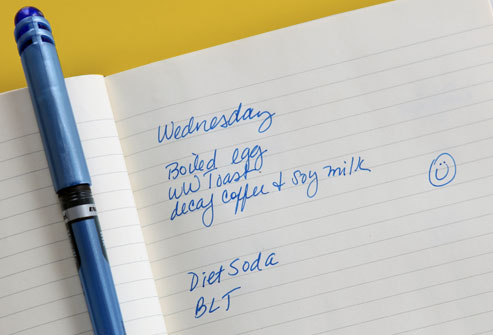 Wednesday
Boiled egg
WW Toast
decaf coffee + soy milk
Diet Soda
BLT